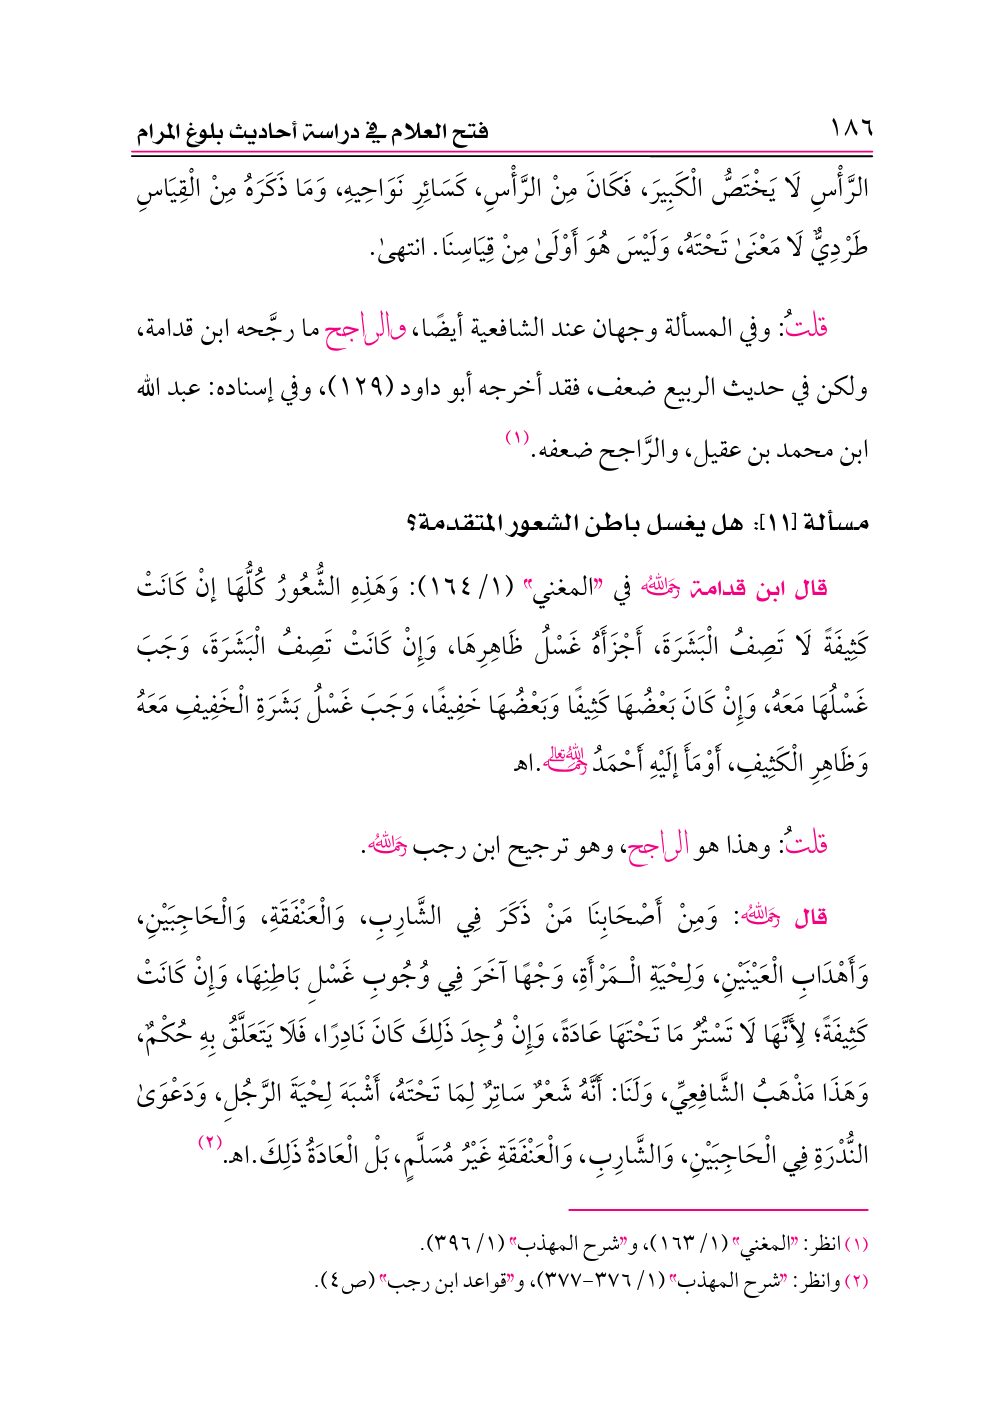 ١٨٦ فتح العلام في دراسة أحاديث بلوغ المرام
الرَّأْسِ لَا يَخْتَصُّ الْكَبِيرَ، فَكَانَ مِنْ الرَّأْسِ، كَسَائِرِ نَوَاحِيهِ، وَمَا ذَكَرَهُ مِنْ الْقِيَاسِ
طَرْدِيٌّ لَا مَعْنَىٰ تَحْتَهُ، وَلَيْسَ هُوَ أَوْلَىٰ مِنْ قِيَاسِنَا. انتهىٰ.
قلتُ: وفي المسألة وجهان عند الشافعية أيضًا، والراجح ما رجَّحه ابن قدامة،
ولكن في حديث الربيع ضعف، فقد أخرجه أبو داود (١٢٩)، وفي إسناده: عبد الله
ابن محمد بن عقيل، والرَّاجح ضعفه.(١)
مسألة [١١]: هل يغسل باطن الشعور المتقدمة؟
قال ابن قدامة رحمه الله في "المغني" (١/ ١٦٤): وَهَذِهِ الشُّعُورُ كُلُّهَا إنْ كَانَتْ
كَثِيفَةً لَا تَصِفُ الْبَشَرَةَ، أَجْزَأَهُ غَسْلُ ظَاهِرِهَا، وَإِنْ كَانَتْ تَصِفُ الْبَشَرَةَ، وَجَبَ
غَسْلُهَا مَعَهُ، وَإِنْ كَانَ بَعْضُهَا كَثِيفًا وَبَعْضُهَا خَفِيفًا، وَجَبَ غَسْلُ بَشَرَةِ الْخَفِيفِ مَعَهُ
وَظَاهِرِ الْكَثِيفِ، أَوْمَأَ إلَيْهِ أَحْمَدُ رحمه الله تعالى.اهـ
قلتُ: وهذا هو الراجح، وهو ترجيح ابن رجب رحمه الله.
قال رحمه الله: وَمِنْ أَصْحَابِنَا مَنْ ذَكَرَ فِي الشَّارِبِ، وَالْعَنْفَقَةِ، وَالْحَاجِبَيْنِ،
وَأَهْدَابِ الْعَيْنَيْنِ، وَلِحْيَةِ الْـمَرْأَةِ، وَجْهًا آخَرَ فِي وُجُوبِ غَسْلِ بَاطِنِهَا، وَإِنْ كَانَتْ
كَثِيفَةً؛ لِأَنَّهَا لَا تَسْتُرُ مَا تَحْتَهَا عَادَةً، وَإِنْ وُجِدَ ذَلِكَ كَانَ نَادِرًا، فَلَا يَتَعَلَّقُ بِهِ حُكْمٌ،
وَهَذَا مَذْهَبُ الشَّافِعِيِّ، وَلَنَا: أَنَّهُ شَعْرٌ سَاتِرٌ لِمَا تَحْتَهُ، أَشْبَهَ لِحْيَةَ الرَّجُلِ، وَدَعْوَىٰ
النُّدْرَةِ فِي الْحَاجِبَيْنِ، وَالشَّارِبِ، وَالْعَنْفَقَةِ غَيْرُ مُسَلَّمٍ، بَلْ الْعَادَةُ ذَلِكَ.اهـ.(٢)
(١) انظر: "المغني" (١/ ١٦٣)، و"شرح المهذب" (١/ ٣٩٦).
(٢) وانظر: "شرح المهذب" (١/ ٣٧٦-٣٧٧)، و"قواعد ابن رجب" (ص٤).